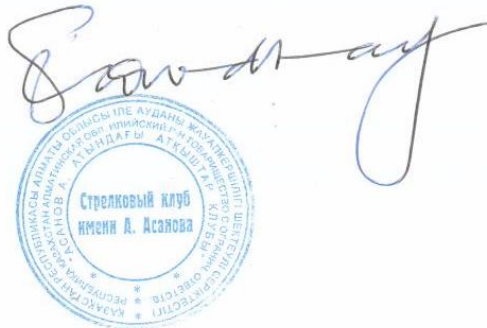 ҚАЗАҚСТАН РЕСПУБЛИКАСЫ АЛМАТЫ ОБЛЫСЫ ІЛЕ АУДАНЫ ЖАУАПКЕРШІЛІГІ ШЕКТЕУЛІ СЕРІКТЕСТІГІ
РЕСПУБЛИКА КАЗАХСТАН АЛМАТИНСКАЯ ОБЛ. ИЛИЙСКИЙ Р-Н ТОВАРИЩЕСТВО С ОГРАНИЧ. ОТВЕТСТВ.
"АСАНОВ А. АТЫНДАҒЫ АТҚЫШТАР КЛУБЫ"
Стрелковый клуб
имени А. Асанова